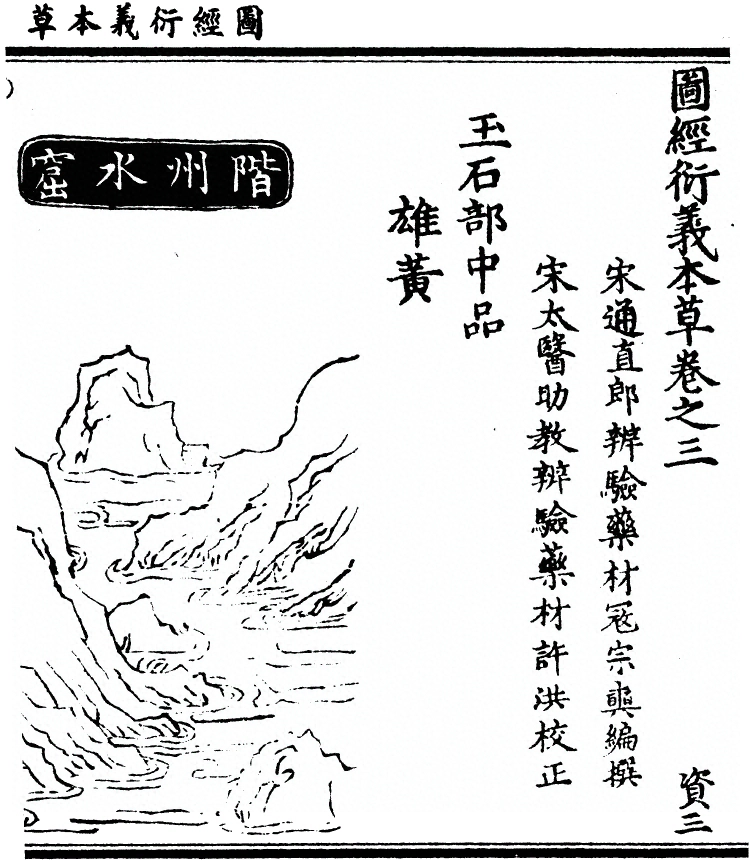 圖經衍義本草
圖經衍義本草卷之三
資三
宋通直郎辨驗藥材冦宗奭編撰
宋太醫助教辨驗藥材許洪校正
玉石部中品
雄黃
階州水窟